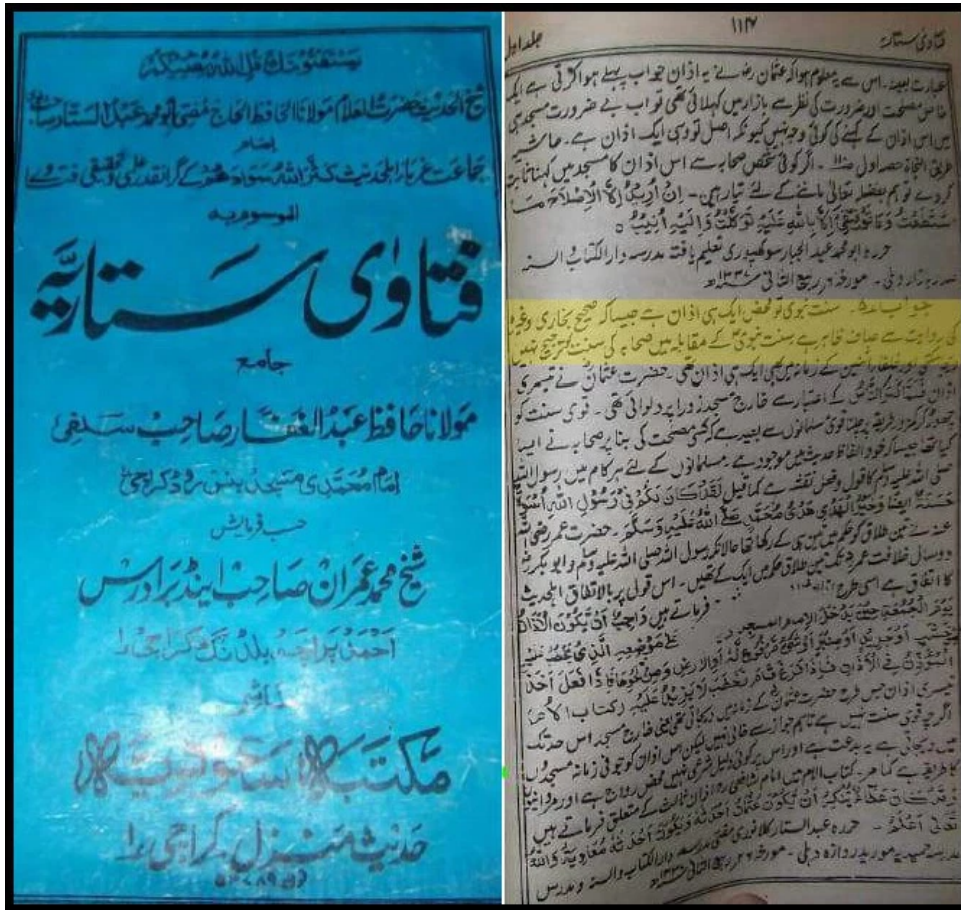 یستفتونک قل اللہ یفتیکم
شیخ الحدیث حضرت العلام مولانا الحافظ الحاج مفتی ابو محمد عبد الستار صاحب
امام
جماعت غرباء اہلحدیث کثر اللہ سوادھم کے گرانقدر علمی و تحقیقی فتوے
الموسوم بہ
فتاوٰی ستاریّہ
جامع
مولانا حافظ عبد الغفار صاحب سلفی
امام محمدی مسجد بنس روڈ کراچی
حسب فرمایش
شیخ محمد عمران صاحب اینڈ برادرس
بلڈنگ کراچی ۱
ناشر
مکتبہ سعودیہ
حدیث منزل کراچی ۱
فتاویٰ ستاریہ ۱۱۴ جلد اول
عبارت بعینہ۔ اس سے یہ معلوم ہوا کہ عثمان رض نے یہ اذان جو اب پہلے ہوا کرتی ہے ایک
خاص مصلحت اور ضرورت کی نظر سے بازار میں کہلائی تھی تو اب بے ضرورت مسجد ہی
میں اس اذان کے کہنے کی کوئی وجہ نہیں کیونکہ اصل تو وہی ایک اذان ہے۔ حاشیہ
طریق النجاۃ حصہ اول۔ اگر کوئی شخص صحابہ سے اس اذان کا مسجد میں کہنا ثابت
کر دے تو ہم بفضل تعالیٰ ماننے کے لئے تیار ہیں۔ اِنْ اُرِیْدُ اِلَّا الْاِصْلَاحَ مَا
اسْتَطَعْتُ وَمَا تَوْفِیْقِیْ اِلَّا بِاللّٰہِ عَلَیْہِ تَوَکَّلْتُ وَاِلَیْہِ اُنِیْبُ ہ
حررہ ابو محمد عبد الجبار سوکھپوری تعلیم یافتہ مدرسہ دار الکتاب والسنہ
صدر بازار دہلی۔ مورخہ ۶ ربیع الثانی ۱۳۳۷ھ
جواب ۔ سنت نبوی تو محض ایک ہی اذان ہے جیسا کہ صحیح بخاری وغیرہ
کی روایت سے صاف ظاہر ہے سنت نبوی کے مقابلہ میں صحابہ کی سنت کو ترجیح نہیں
خلفاء راشدین کے زمانہ میں بھی ایک ہی اذان تھی۔ حضرت عثمان نے تیسری
اذان کے اعتبار سے خارج مسجد زوراء پر دلوائی تھی۔ قوی سنت کو
چھوڑ کر کمزور طریقہ پر چلنا قوی مسلمانوں سے بعید ہے کسی مصلحت کی بنا پر صحابہ نے ایسا
کیا تھا جیسا کہ خود الفاظ حدیث میں موجود ہے۔ مسلمانوں کے لئے ہر کام میں رسول اللہ
صلی اللہ علیہ وسلم کا قول و فعل نقشہ ہے کما قیل لَقَدْ کَانَ لَکُمْ فِیْ رَسُوْلِ اللّٰہِ اُسْوَۃٌ
حَسَنَۃٌ ایضا وَخَیْرُ الْہَدْیِ ہَدْیُ مُحَمَّدٍ صَلَّی اللّٰہُ عَلَیْہِ وَسَلَّمَ۔ حضرت عمر رضی اللہ
عنہ نے تین طلاق کو حکم میں تین ہی کے رکھا تھا حالانکہ رسول اللہ صلی اللہ علیہ وسلم و ابو بکر رض
و دو سال خلافت عمر رض تک تین طلاق حکم میں ایک کے تھیں۔ اس قول پر بالاتفاق اہلحدیث
کا اتفاق ہے اسی طرح فرماتے ہیں وَاَحِبُّ اَنْ یَّکُوْنَ الْاَذَانُ
یَوْمَ الْجُمُعَۃِ حِیْنَ یَدْخُلُ الْاِمَامُ الْمَسْجِدَ
خَشَبٍ اَوْ جَرِیْدٍ اَوْ مِنْبَرٍ اَوْ شَیْءٍ مَرْفُوْعٍ لَہٗ اَوِ الْاَرْضِ فَاِذَا فَعَلَ اَخَذَ
الْمُؤَذِّنُ فِی الْاَذَانِ فَاِذَا فَرَغَ قَامَ فَخَطَبَ لَا یَزِیْدُ عَلَیْہِ
تیسری اذان جس طرح حضرت عثمان رض کے زمانہ میں دیجاتی تھی یعنی خارج مسجد اس حد تک
اگرچہ قوی سنت نہیں ہے تاہم جواز سے خالی نہیں لیکن اس اذان کو جو فی زمانہ مسجدوں
میں دیجاتی ہے یہ بدعت ہے اور اس پر کوئی دلیل شرعی نہیں محض رواج ہے
کا طریقہ ہے کما مر۔ کتاب الام میں امام شافعی رح اذان ثالث کے متعلق فرماتے ہیں
وَقَدْ کَانَ عَطَاءٌ یُنْکِرُ اَنْ یَّکُوْنَ عُثْمَانُ اَحْدَثَہٗ وَیَقُوْلُ اَحْدَثَہٗ مُعَاوِیَۃُ وَاللّٰہُ
تَعَالٰی اَعْلَمُ۔ حررہ عبد الستار کلانوری مفتی مدرسہ دار الکتاب والسنہ و مدرس
مدرسہ حمیدیہ صدر دروازہ دہلی۔ مورخہ ۶ ربیع الثانی ۱۳۳۷ھ